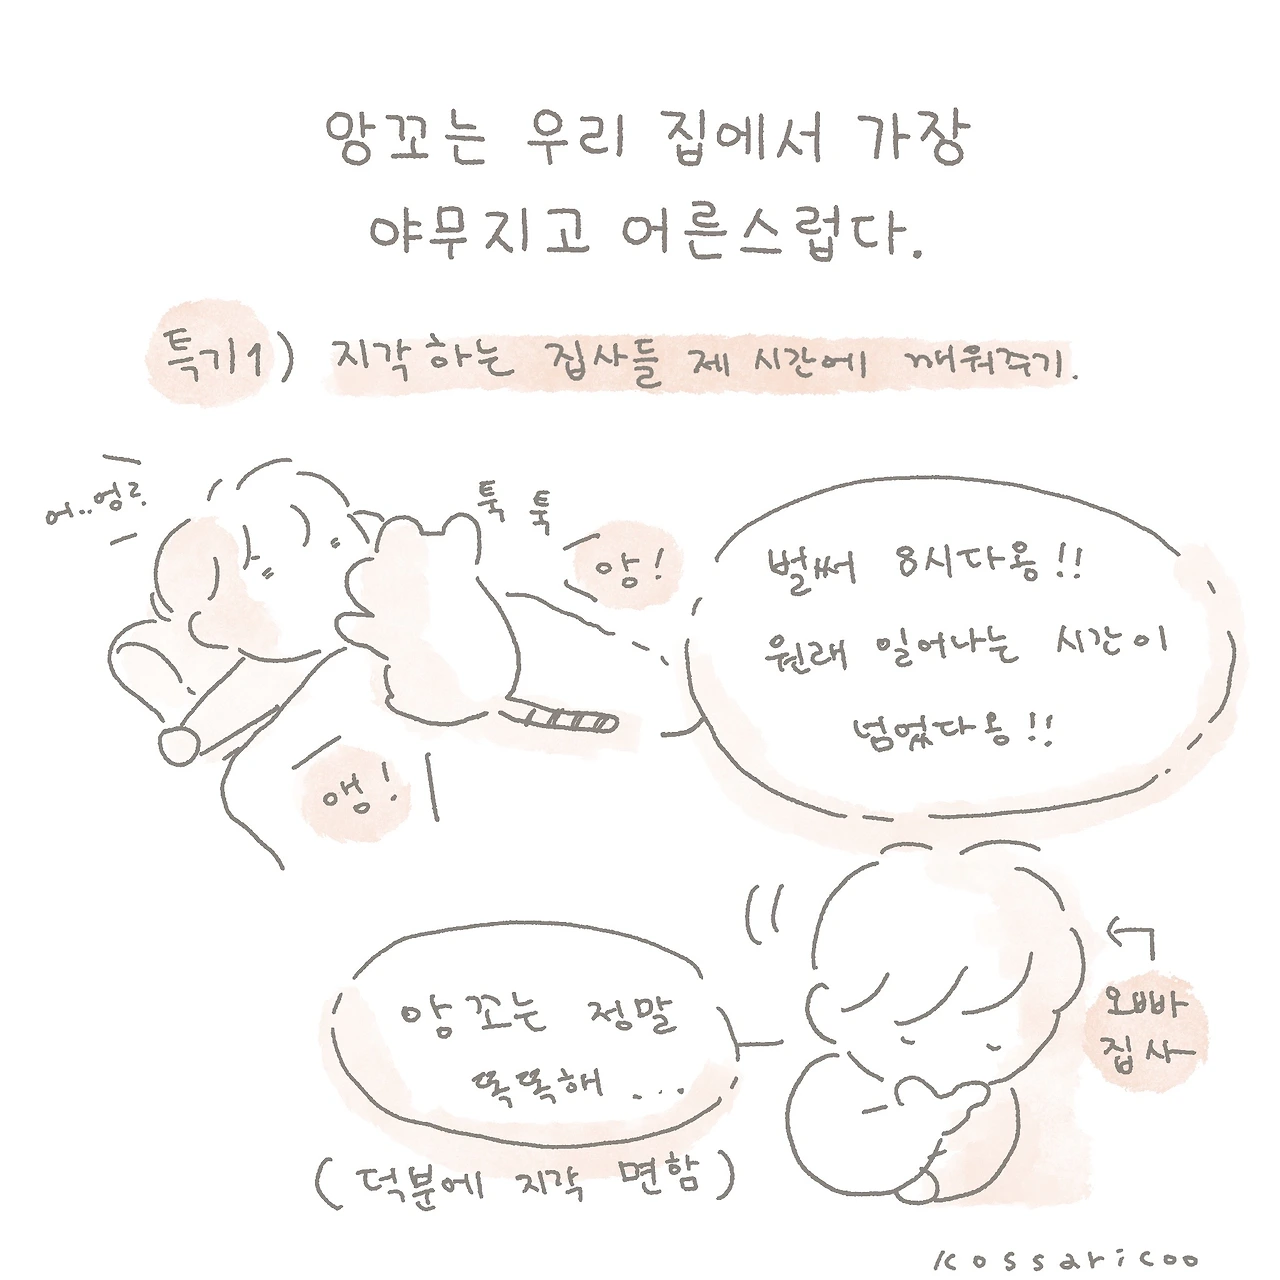 앙꼬는 우리 집에서 가장
야무지고 어른스럽다.
특기1) 지각하는 집사들 제 시간에 깨워주기.
어..엉?
툭 툭
앙!
벌써 8시다옹!!
원래 일어나는 시간이
넘었다옹!!
앵!
앙꼬는 정말
똑똑해...
(덕분에 지각 면함)
오빠
집사
kossaricoo